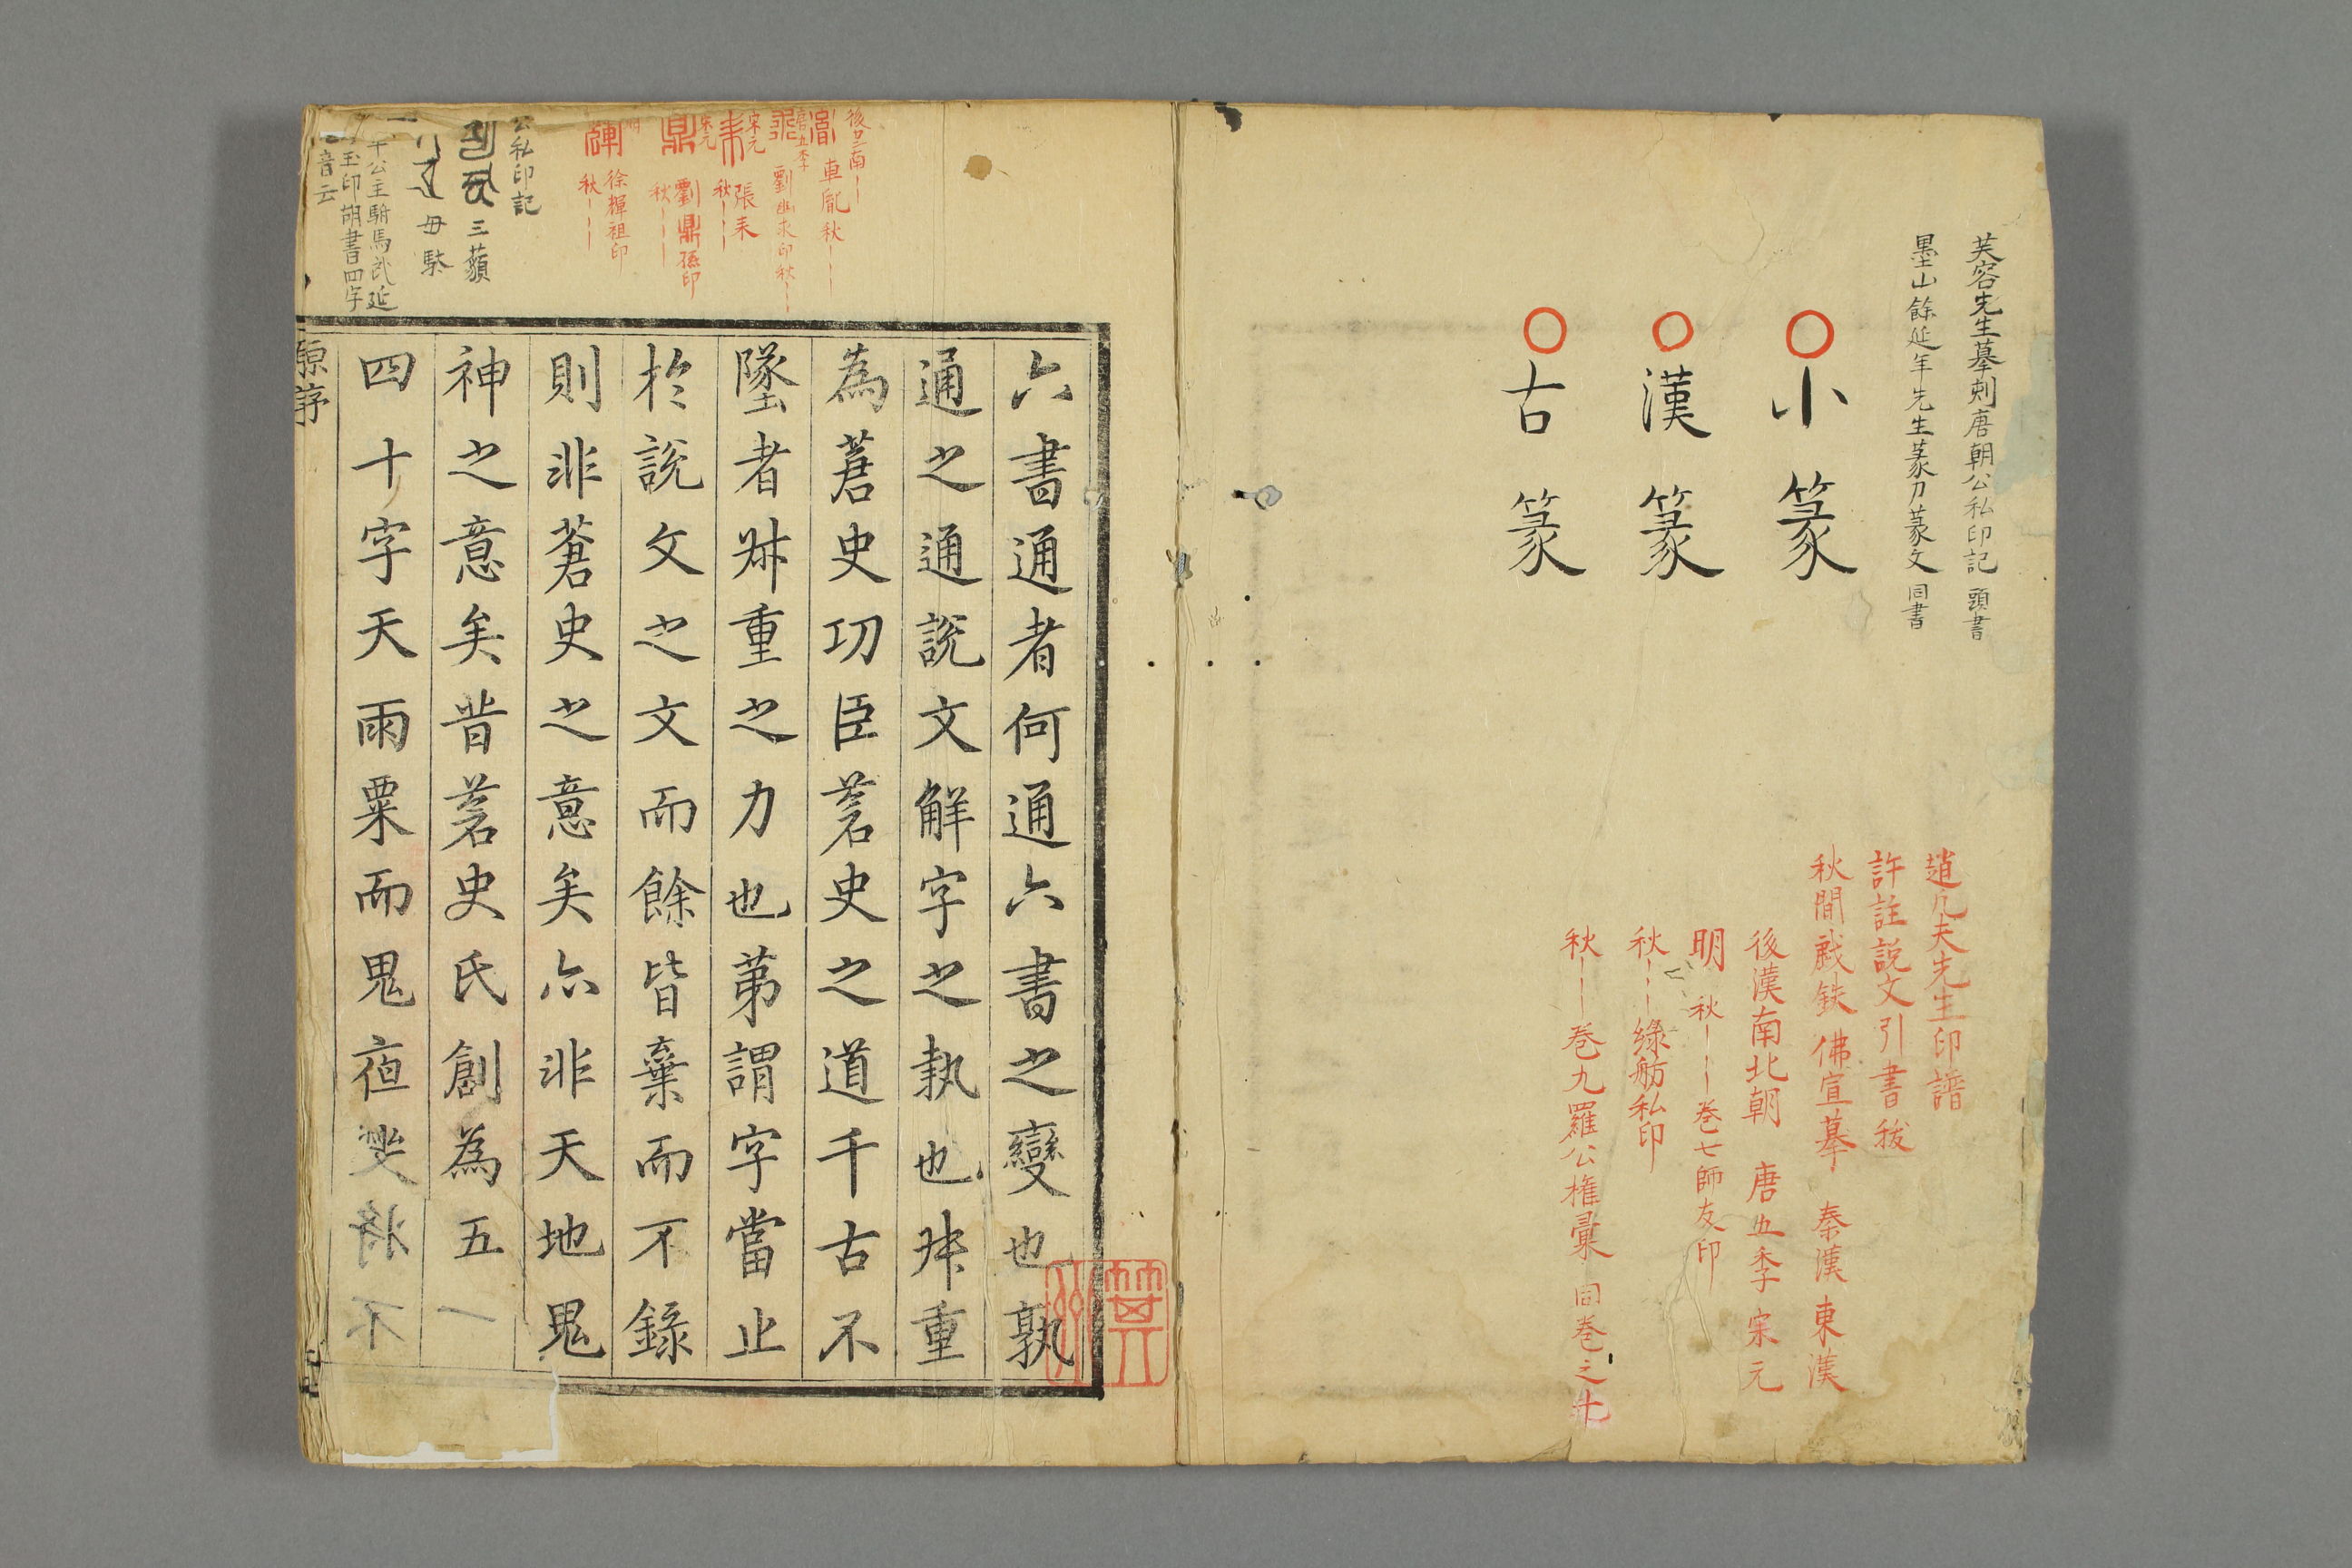 芙容先生摹刻唐朝公私印記 頭書
墨山餘延年先生篆刀篆文 同書
小篆
漢篆
古篆
趙凡夫先生印譜
許註説文引書
秋間戯鉄 佛宣摹 秦漢 東漢
後漢南北朝 唐五季 宋元
明 秋 卷七師友印
秋 綠舫私印
秋 卷九羅公権彙 同卷之十
車胤秋
唐五季
劉幽求印秋
宋元
張耒
秋
宋元
劉鼎孫印
秋
徐禋祖印
秋
公私印記
三蘋
毋駄
公主駙馬武延
玉印胡書四字
音云
六書通者何通六書之變也孰
通之通説文解字之執也重
為蒼史功臣蒼史之道千古不
墜者重之力也苐謂字當止
於説文之文而餘皆棄而不錄
則非蒼史之意矣六非天地鬼
神之意矣昔蒼史氏創為五
四十字天雨粟而鬼夜
原序